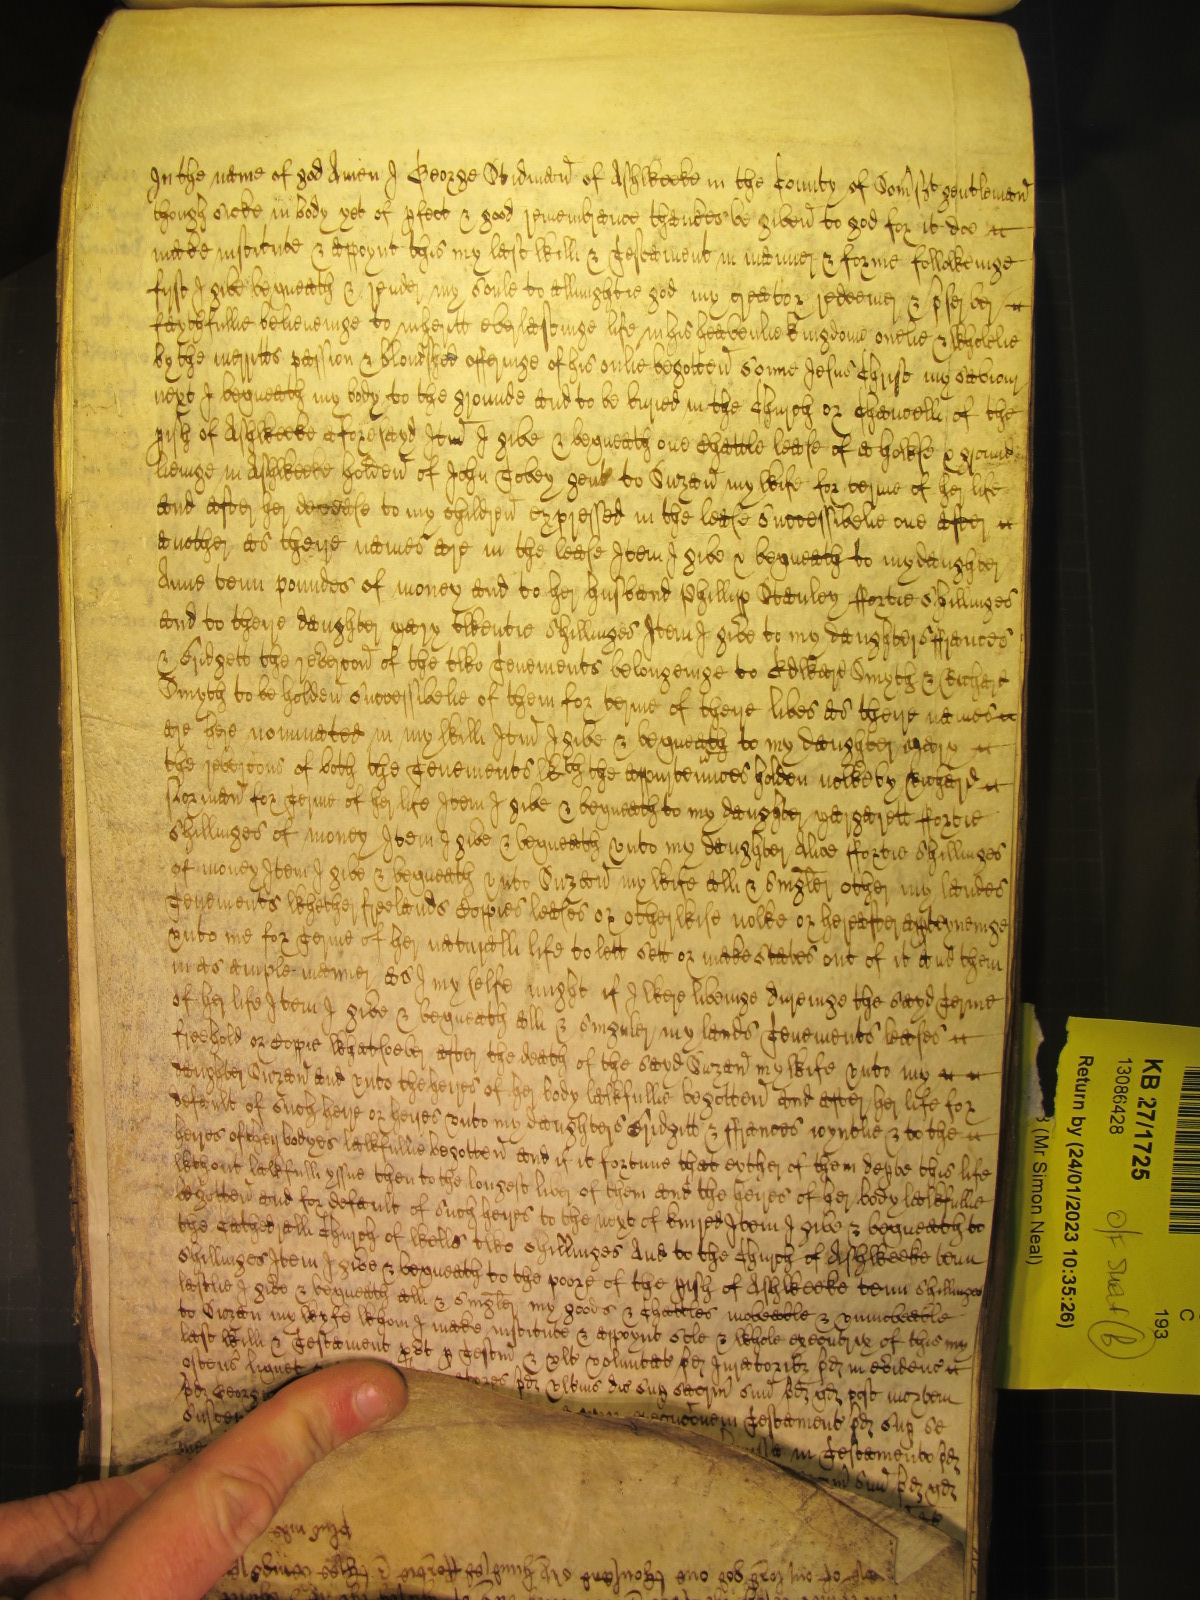 In the name of god Amen I George Stidman of Ashweeke in the County of Somst gentleman
though sicke in body yet of pfect & good remembrance thankes be given to god for it doe
make institute & appoynt this my last will & Testament in manner & forme followeinge
first I give bequeath & render my soule to allmightie god my creator redeemer & pserver
faythfullie beleveinge to inheritt everlastinge life in his heavenlie kingdome onelie & whollelie
by the meritts passion & bloudshed offeringe of his onlie begotten sonne Jesus Christ my saviour
next I bequeath my body to the grounde and to be buried in the Church or Chancell of the
pish of Ashweeke aforesayd Item I give & bequeath one Chattle lease of a howse & ground
lieinge in Ashweeke holden of John Tobey gent to Suzan my wife for terme of her life
and after her decease to my children expressed in the lease successivelie one after
another as theire names are in the lease Item I give & bequeath to my daughter
Anne tenn poundes of money and to her husband Phillip Stanley ffortie shillinges
and to theire daughter Mary twentie shillinges Item I give to my daughters ffrances
& Bridgett the revercon of the two Tenements belongeinge to Edward Smyth & Richard
Smyth to be holden successivelie of them for terme of theire lives as theire names
are here nominated in my will Item I give & bequeath to my daughter Mary
the revercons of both the Tenements wth the appurtennces holden nowe by Richard
Norman for Terme of her life Item I give & bequeath to my daughter Margarett ffortie
shillinges of money Item I give & bequeath unto my daughter Alice ffortie shillinges
of money Item I give & bequeath unto Suzan my wife all & singler other my landes
Tenements whether freelands Coppies leases or otherwise nowe or hereafter apperteyneinge
unto me for Terme of her naturall life to lett sett or make states out of it and them
in as ample manner as I my selfe might if I were liveinge dureinge the sayd Terme
of her life Item I give & bequeath all & singuler my lands Tenements leases
freehold or Coppie whatsoever after the death of the sayd Suzan my wife unto my
daughter Suzan and unto the heyres of her body lawfullie begotten and after her life for
default of such heyre or heyres unto my daughters Bridgitt & ffrances joyntlie & to the
heyres of their bodyes lawfullie begotten and if it fortune that eyther of them depte this life
wthout lawfull yssue then to the longest liver of them and the heyres of her body lawfullie
begotten and for default of such heyres to the next of kinred Item I give & bequeath to
the Cathedrall Church of Wells two shillinges And to the Church of Ashweeke tenn
shillinges Item I give & bequeath to the poore of the pish of Ashweeke tenn shillinges
lastlie I give & bequeath all & singler my goods & Chattles moveable & unmoveable
to Suzan my wyfe whom I make institute & appoynt sole & whole executrix of this my
last will & Testament Testm & ult voluntat pd Juratoribz pd in evidenc
ostens
pd Georgi pd ultimo die post mortem
Testament pd sup se
in Testamento pd
KB 27/1725
13086428
Return by (24/01/2023 10:35:26)
(Mr Simon Neal)
C
193